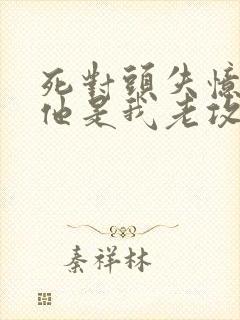 死對頭失憶
他是我老攻
秦祥林